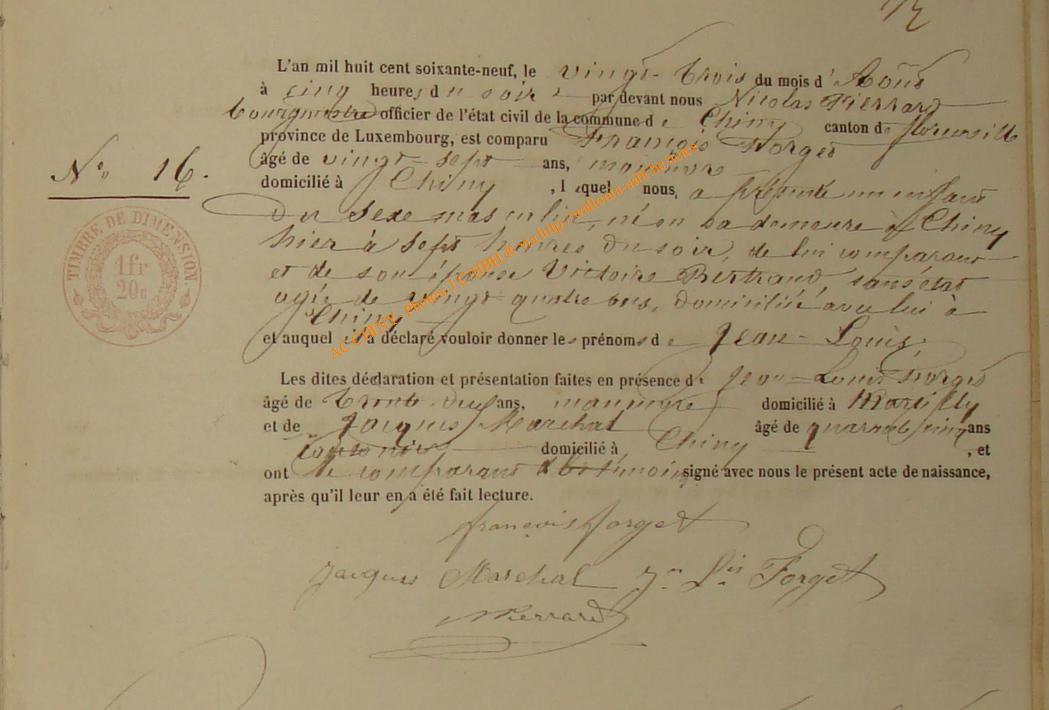 L'an mil huit cent soixante-neuf, le vingt-trois du mois d'Août
à cinq heures du soir par devant nous Nicolas Pierrard
bourgmestre officier de l'état civil de la commune de Chiny canton de florenville
province de Luxembourg, est comparu François Forget
âgé de vingt sept ans, manœuvre
N° 16.
domicilié à Chiny, lequel nous, a présenté un enfant
du sexe masculin, né en sa demeure à Chiny
hier à sept heures du soir, de lui comparant
TIMBRE DE DIMENSION.
1fr
20c
et de son épouse Victoire Bertrand, sans état
agée de vingt-quatre ans, domiciliée avec lui à
Chiny
et auquel il a déclaré vouloir donner les prénoms de Jean-Louis,
Les dites déclaration et présentation faites en présence de Jean-Louis Forget
âgé de trente-deux ans, manœuvre domicilié à
et de Jacques Marchal âgé de quarante cinq ans
domicilié à Chiny, et
ont le comparant & les témoins signé avec nous le présent acte de naissance,
après qu'il leur en a été fait lecture.
françois forget
Jacques Marchal Jn Lis Forget
Pierrard